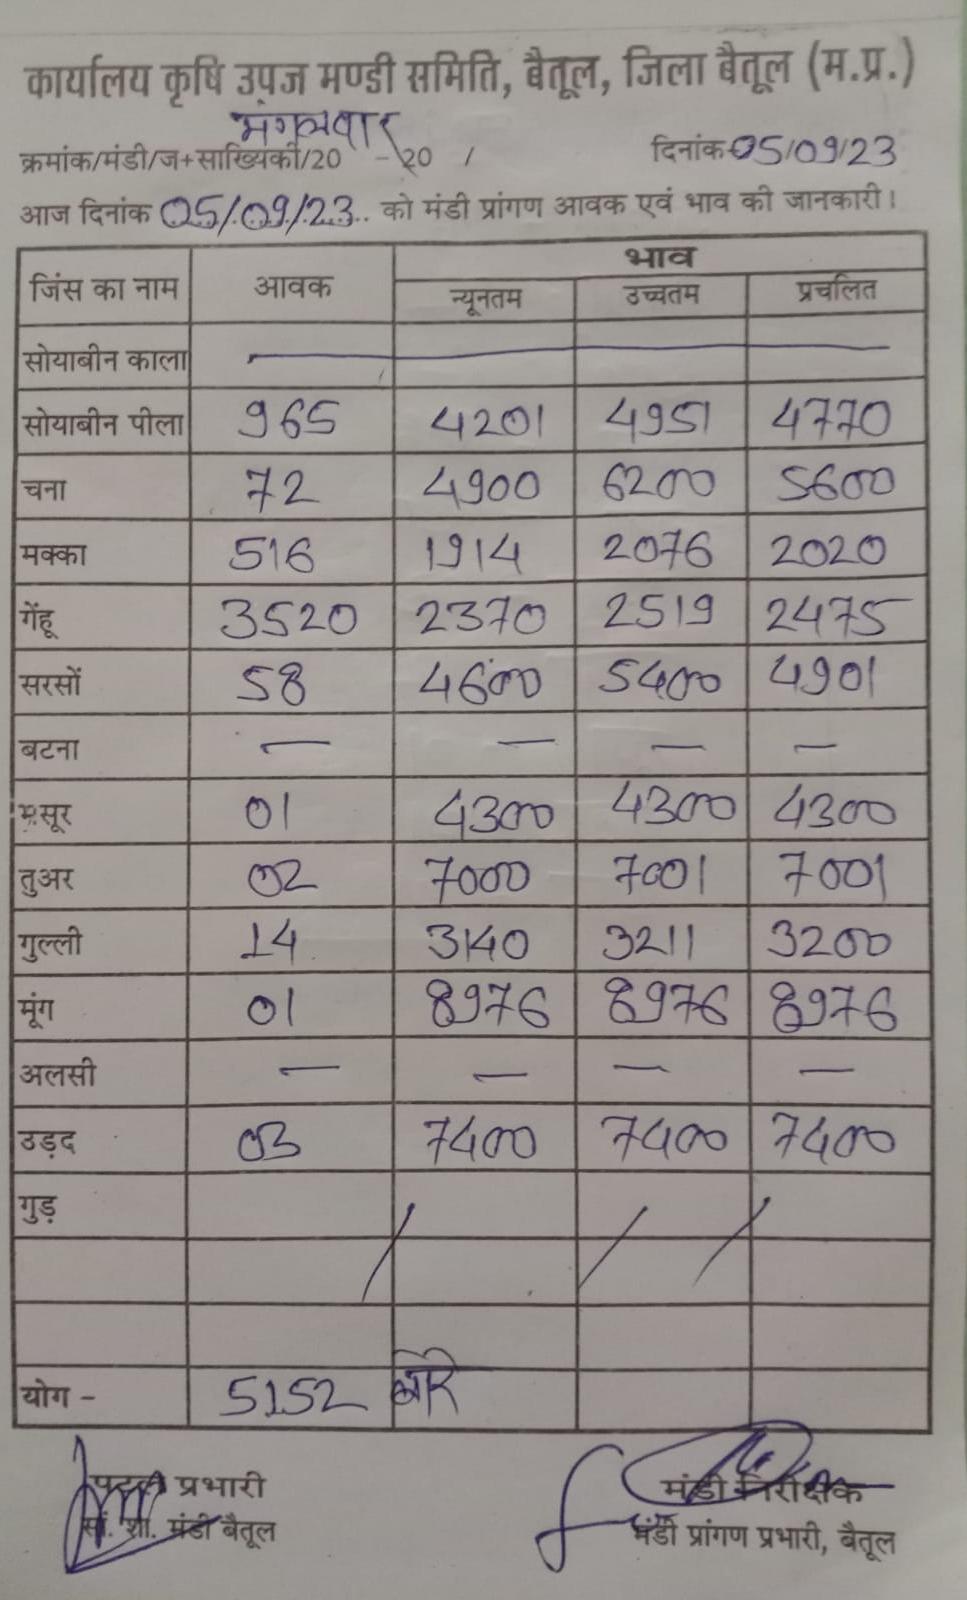 कार्यालय कृषि उपज मण्डी समिति, बैतूल, जिला बैतूल (म.प्र.)
मंगलवार
क्रमांक/मंडी/ज+सांख्यिकी/20 -20 / दिनांक 05/09/23
आज दिनांक 05/09/23 को मंडी प्रांगण आवक एवं भाव की जानकारी।
जिंस का नाम आवक भाव
न्यूनतम उच्चतम प्रचलित
सोयाबीन काला —
सोयाबीन पीला 965 4201 4951 4770
चना 72 4900 6200 5600
मक्का 516 1914 2076 2020
गेंहू 3520 2370 2519 2475
सरसों 58 4600 5400 4901
बटना — — — —
मसूर 01 4300 4300 4300
तुअर 02 7000 7001 7001
गुल्ली 14 3140 3211 3200
मूंग 01 8976 8976 8976
अलसी — — — —
उड़द 03 7400 7400 7400
गुड़ / / /
योग - 5152
प्रभारी मंडी निरीक्षक
सां. शा. मंडी बैतूल मंडी प्रांगण प्रभारी, बैतूल